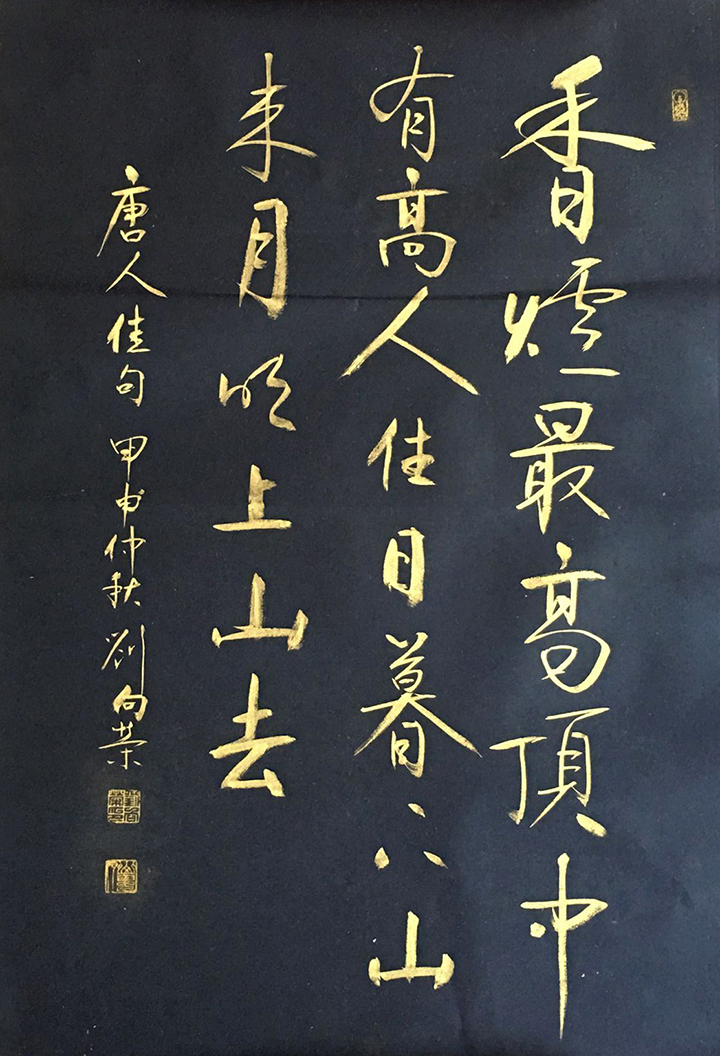 香爐最高頂中
有高人住日暮下山
来月明上山去
唐人佳句 甲申仲秋 劉向榮